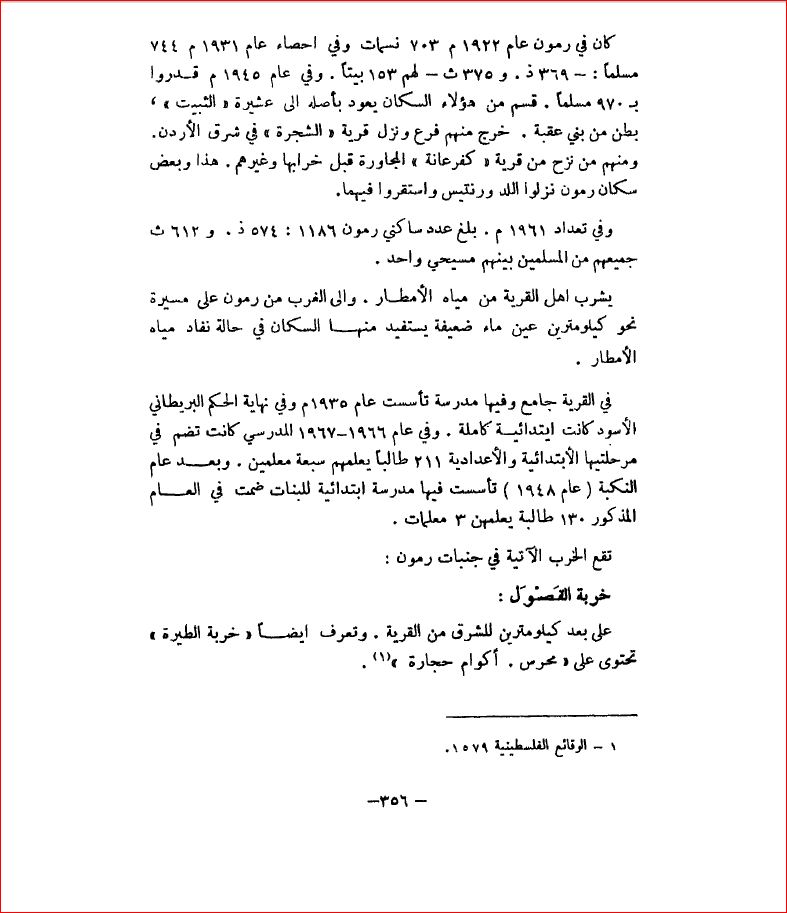 كان في رمون عام ١٩٢٢ م ٧٠٣ نسمات وفي احصاء عام ١٩٣١ م ٧٤٤
مسلماً : – ٣٦٩ ذ . و ٣٧٥ ث – لهم ١٥٣ بيتاً . وفي عام ١٩٤٥ م قـدروا
بـ ٩٧٠ مسلماً . قسم من هؤلاء السكان يعود بأصله الى عشيرة « الثبيت » ،
بطن من بني عقبة . خرج منهم فرع ونزل قرية « الشجرة » في شرق الأردن.
ومنهم من نزح من قرية « كفرعانة » المجاورة قبل خرابها وغيرهم . هذا وبعض
سكان رمون نزلوا اللد ورنتيس واستقروا فيهما.
وفي تعداد ١٩٦١ م . بلغ عدد ساكني رمون ١١٨٦ : ٥٧٤ ذ . و ٦١٢ ث
جميعهم من المسلمين بينهم مسيحي واحد .
يشرب اهل القرية من مياه الأمطـار . والى الغرب من رمون على مسيرة
نحو كيلومترين عين ماء ضعيفة يستفيد منهـا السكان في حالة نفاد مياه
الأمطار .
في القرية جامع وفيها مدرسة تأسست عام ١٩٣٥م وفي نهاية الحكم البريطاني
الأسود كانت ابتدائيـة كاملة . وفي عام ١٩٦٦–١٩٦٧ المدرسي كانت تضم في
مرحلتيها الأبتدائية والأعدادية ٢١١ طالباً يعلمهم سبعة معلمين . وبعـد عام
النكبة ( عام ١٩٤٨ ) تأسست فيها مدرسة ابتدائية للبنات ضمت في العـام
المذكور ١٣٠ طالبة يعلمهن ٣ معلمات .
تقع الخرب الآتية في جنبات رمون :
خربة القَصْوَل :
على بعد كيلومترين للشرق من القرية . وتعرف ايضـاً « خربة الطيرة »
تحتوى على « محرس . أكوام حجارة »(١) .
١ – الوقائع الفلسطينية ١٥٧٩.
– ٣٥٦–